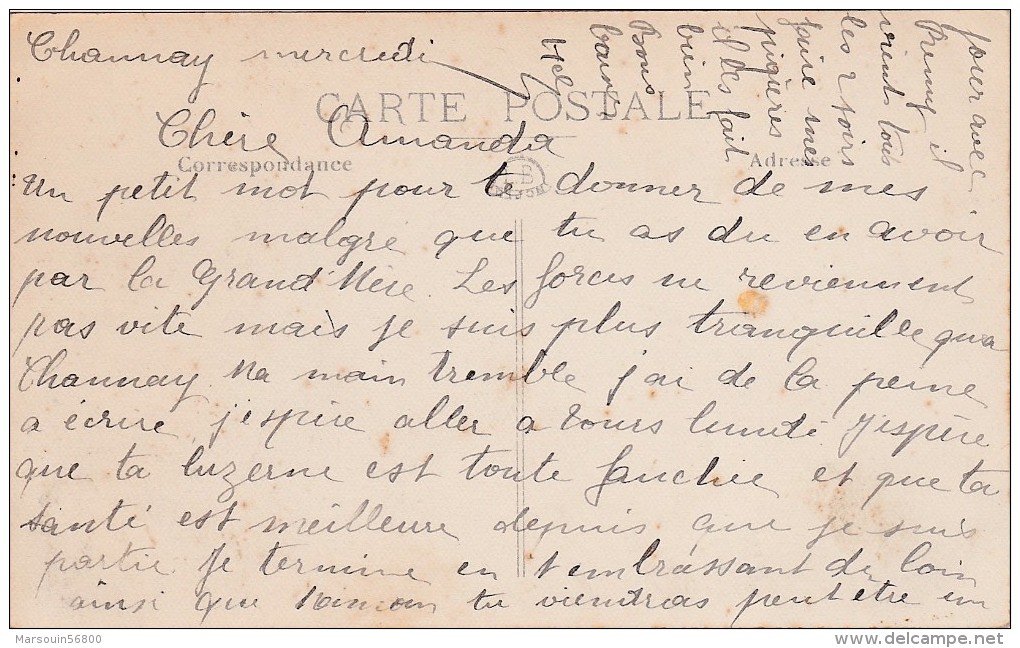 Channay mercredi
CARTE POSTALE
Chère Amanda
Correspondance
Adresse
Un petit mot pour te donner de mes
nouvelles malgre que tu as du en avoir
par la Grand'Mère. Les forces ne reviennent
pas vite mais je suis plus tranquille qu'a
Channay. Ma main tremble j'ai de la peine
a écrire, j'espère aller a Tours lundi J'espère
que ta luzerne est toute fauchée et que ta
santé est meilleure depuis que je suis
partie. Je termine en t'embrassant de loin
ainsi que Maman tu viendras peut etre un
jour avec
Remy il
vient tous
les 2 soirs
faire mes
piqures
il les fait
bien
Bons
baisers
Marsouin56800
www.delcampe.net